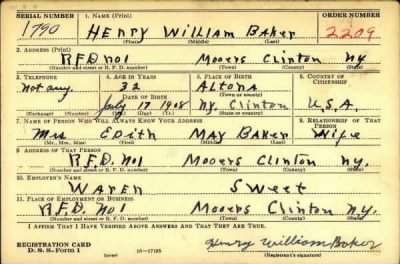 SERIAL NUMBER 1. NAME (Print) ORDER NUMBER
1790 HENRY WILLIAM BAKER 2209
(First) (Middle) (Last)
2. ADDRESS (Print)
R.F.D no1 Mooers Clinton ny
(Number and street or R. F. D. number) (Town) (County) (State)
3. TELEPHONE 4. AGE IN YEARS 5. PLACE OF BIRTH 6. COUNTRY OF CITIZENSHIP
Not any. 32 Altona
DATE OF BIRTH (Town or county)
July 17 1908 Ny. Clinton U.S.A.
(Exchange) (Number) (Mo.) (Day) (Yr.) (State or country)
7. NAME OF PERSON WHO WILL ALWAYS KNOW YOUR ADDRESS 8. RELATIONSHIP OF THAT PERSON
Mrs EDITH MAY BAKER Wife
(Mr., Mrs., Miss) (First) (Middle) (Last)
9. ADDRESS OF THAT PERSON
R.F.D. No1 Mooers Clinton ny.
(Number and street or R. F. D. number) (Town) (County) (State)
10. EMPLOYER'S NAME
WAREN SWEET
11. PLACE OF EMPLOYMENT OR BUSINESS
R.F.D. No1 Mooers Clinton ny.
(Number and street or R. F. D. number) (Town) (County) (State)
I AFFIRM THAT I HAVE VERIFIED ABOVE ANSWERS AND THAT THEY ARE TRUE.
REGISTRATION CARD
D. S. S. Form 1 16—17105 Henry William Baker
(over) (Registrant's signature)